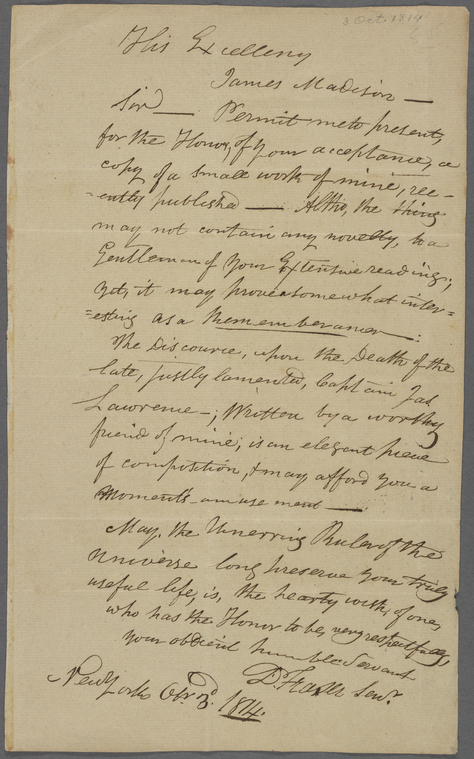 3 Oct. 1814
His Excellency
James Madison —
Sir — Permit me to present,
for the Honor, of your acceptance, a
copy of a small work of mine, rec=
=ently published — Altho, the thing
may not contain any novelty, to a
Gentleman of Your Extensive reading;
yet, it may prove somewhat inter=
=esting as a Rememberancer —:
The Discource, upon the Death of the
late, justly lamented, Captain Jas
Lawrence —; Written by a worthy
friend of mine; is an elegant piece
of composition, & may afford You a
Moments amusement —.
May, the Unerring Ruler of the
Universe long preserve your truly
useful life, is, the hearty wish, of one,
who has the Honor to be, very respectfully,
Your obdient humble Servant
D. Fraser Senr.
New York Obr. 3d. 1814.